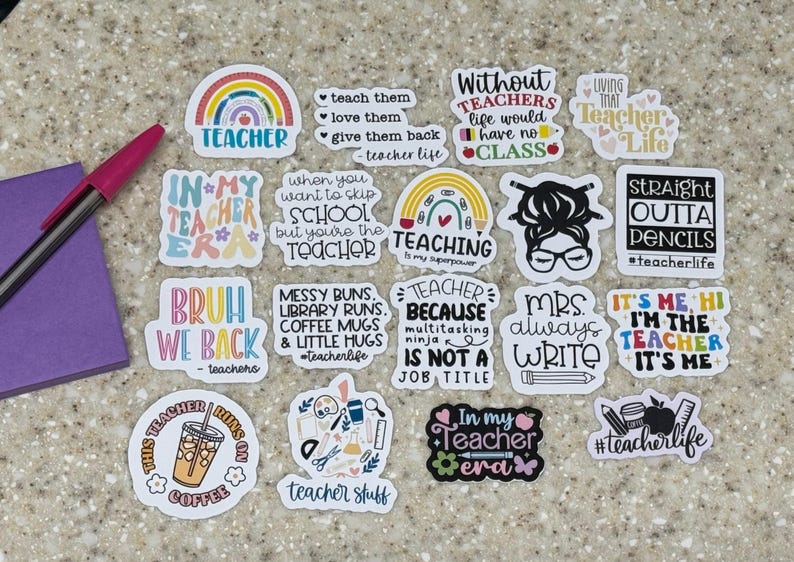 TEACHER
teach them
love them
give them back
- teacher life
Without
TEACHERS
life would
have no
CLASS
LIVING
THAT
Teacher
Life
IN MY
TEACHER
ERA
when you
want to skip
SCHOOL
but you're the
TEACHER
TEACHING
is my superpower
STRAIGHT
OUTTA
PENCILS
#teacherlife
BRUH
WE BACK
- teachers
MESSY BUNS,
LIBRARY RUNS,
COFFEE MUGS
& LITTLE HUGS
#teacherlife
TEACHER
BECAUSE
multitasking
ninja
IS NOT A
JOB TITLE
MRS.
always
WRITE
IT'S ME, HI
I'M THE
TEACHER
IT'S ME
THIS TEACHER RUNS ON
COFFEE
teacher stuff
In my
Teacher
era
COFFEE
#teacherlife